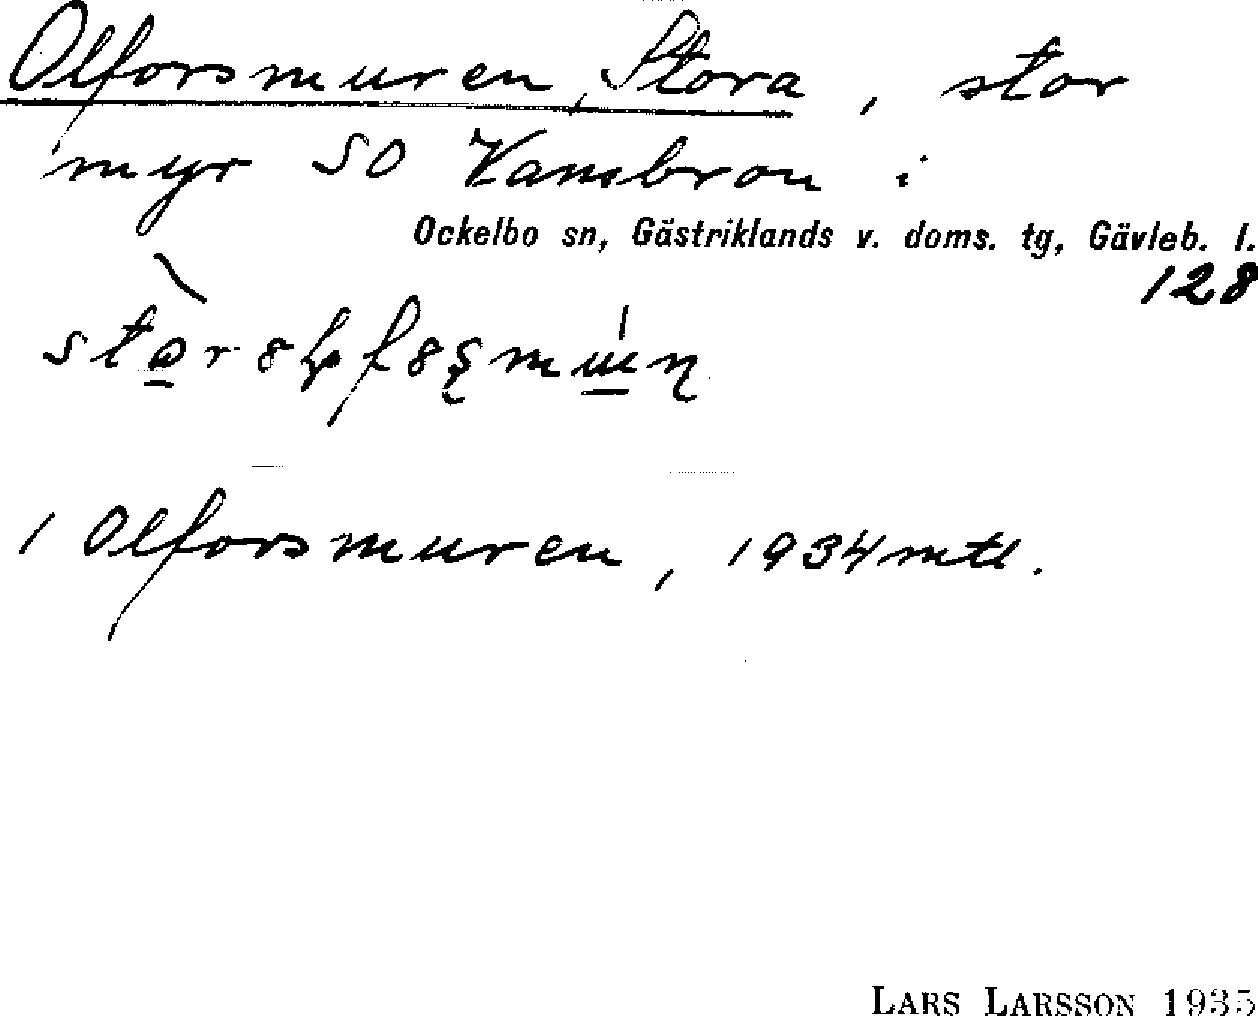 Olforsmuren, Stora, stor
myr SO Vansbron i
Ockelbo sn, Gästriklands v. doms. tg, Gävleb. l.
128
1 Olforsmuren, 1934 mtl.
LARS LARSSON 1935